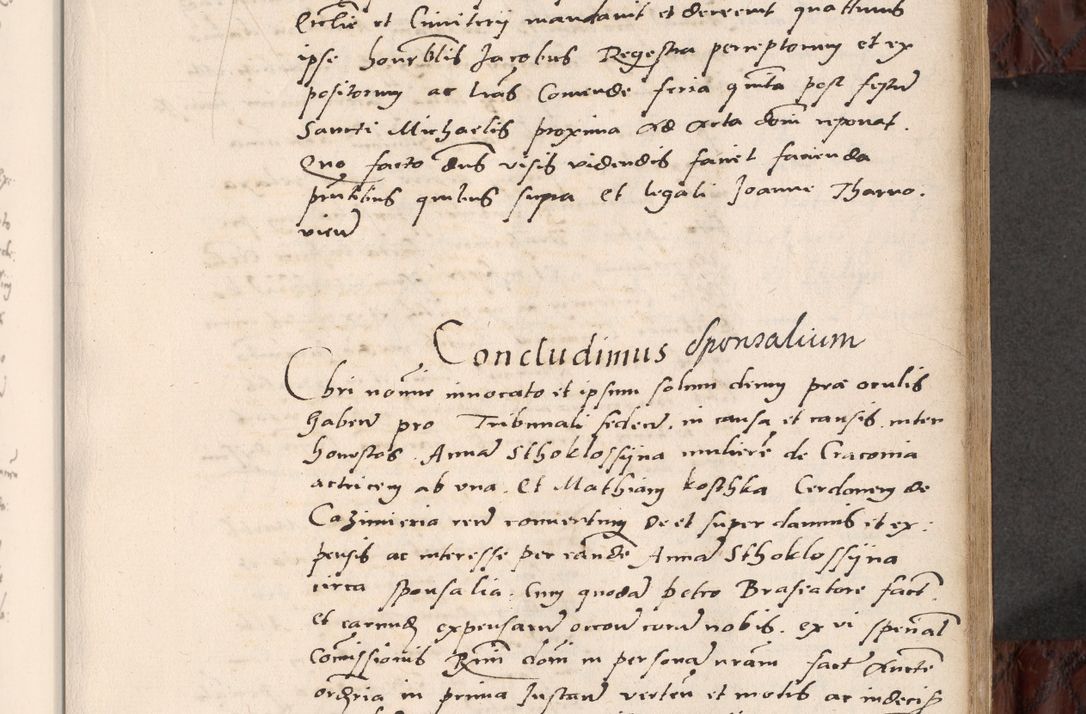 Ecclie et Cimiterij mandavit et decrevit quattinus
ipse honrblis Jacobus Regestra perceptorum et ex
positorum ac lras Comende feria quinta post festu
Sancti Michaelis proxima ad Acta dom reponat.
Quo facto dns visis videndis faciet facienda
pntibus quibus supra Et legali Joanne Tharno.
vien
Concludimus Sponsalium
Chri nomine invocato et ipsum solum deum præ oculis
haben pro Tribunali seden. in causa et causis inter
honestos Anna Sthoklossijna muliere de Cracovia
actricem ab una. Et Mathiam koschka Cerdonem de
Cazimieria reu conventum De et super damnis et ex:
pensis ac interesse per eande Anna Sthoklossijna
circa sponsalia. Cum quoda petro Braseatore fact.
et earund expensaru occon cora nobis. ex vi spenal
Comissionis Rmi dom in persona nram fact Aucte
ordria in prima Instan verten et motis ac indecis